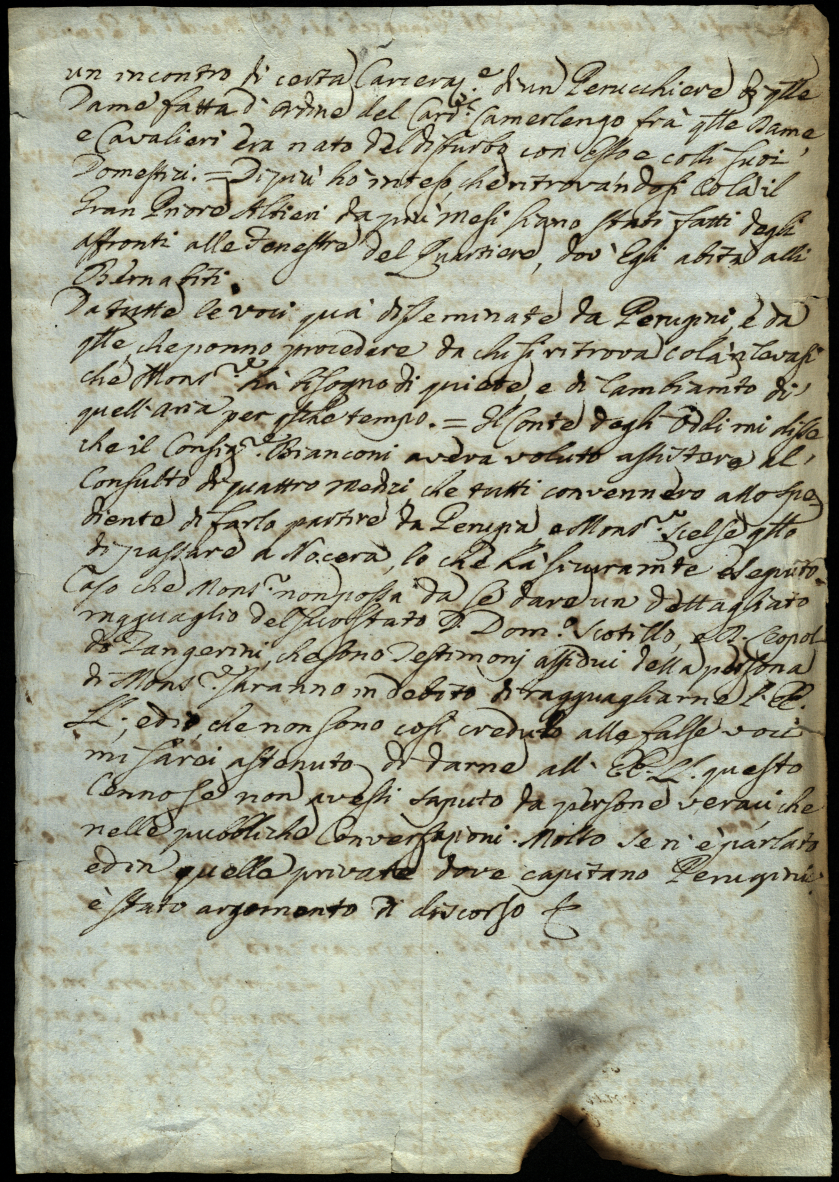 un incontro di certa Carceraz.e di un Perucchiere di qlle
Dame fatta d'ordine del Card.l Camerlengo frà qlle Dame,
e Cavalieri era nato del disturbo con Esso e colli suoi
Domestici. = Di più hò inteso, che ritrovandosi Colà il
Gran Priore Altieri da più mesi siano stati fatti degli
affronti alle Fenestre del Quartiere, dov'Egli abita alli
Bernabiti.
Da tutte le voci quà disseminate da Perugini, e da
qlle, che ponno procedere da chi si ritrova colà rilevasi
che Mons.re hà bisogno di quiete, e di Cambiamto di
quell'aria per qlche tempo. = Il Conte degli Oddi mi disse
che il Consig.re Bianconi aveva voluto assistere al
Consulto di quattro Medici, che tutti convennero allo spe=
diente di farlo partire da Perugia, e Mons.re scelse qllo
di passare a Nocera, lo che hà sicuramte eseguito.
Caso che Mons.re non possa da se dare un dettagliato
ragguaglio del suo stato D. Dom.o Scotillo, e D. Leopol
do Tangerini, che sono Testimonj assidui della persona
di Mons.re saranno in debito di ragguagliarne l'EE.
LL., ed io, che non sono così credulo alle false voci
mi sarei astenuto di darne all'EE. LL. questo
Cenno se non avessi saputo da persone veraci, che
nelle pubbliche Conversazioni. Molto se n'è parlato
ed in quelle private dove capitano Perugini
è stato argomento di discorso